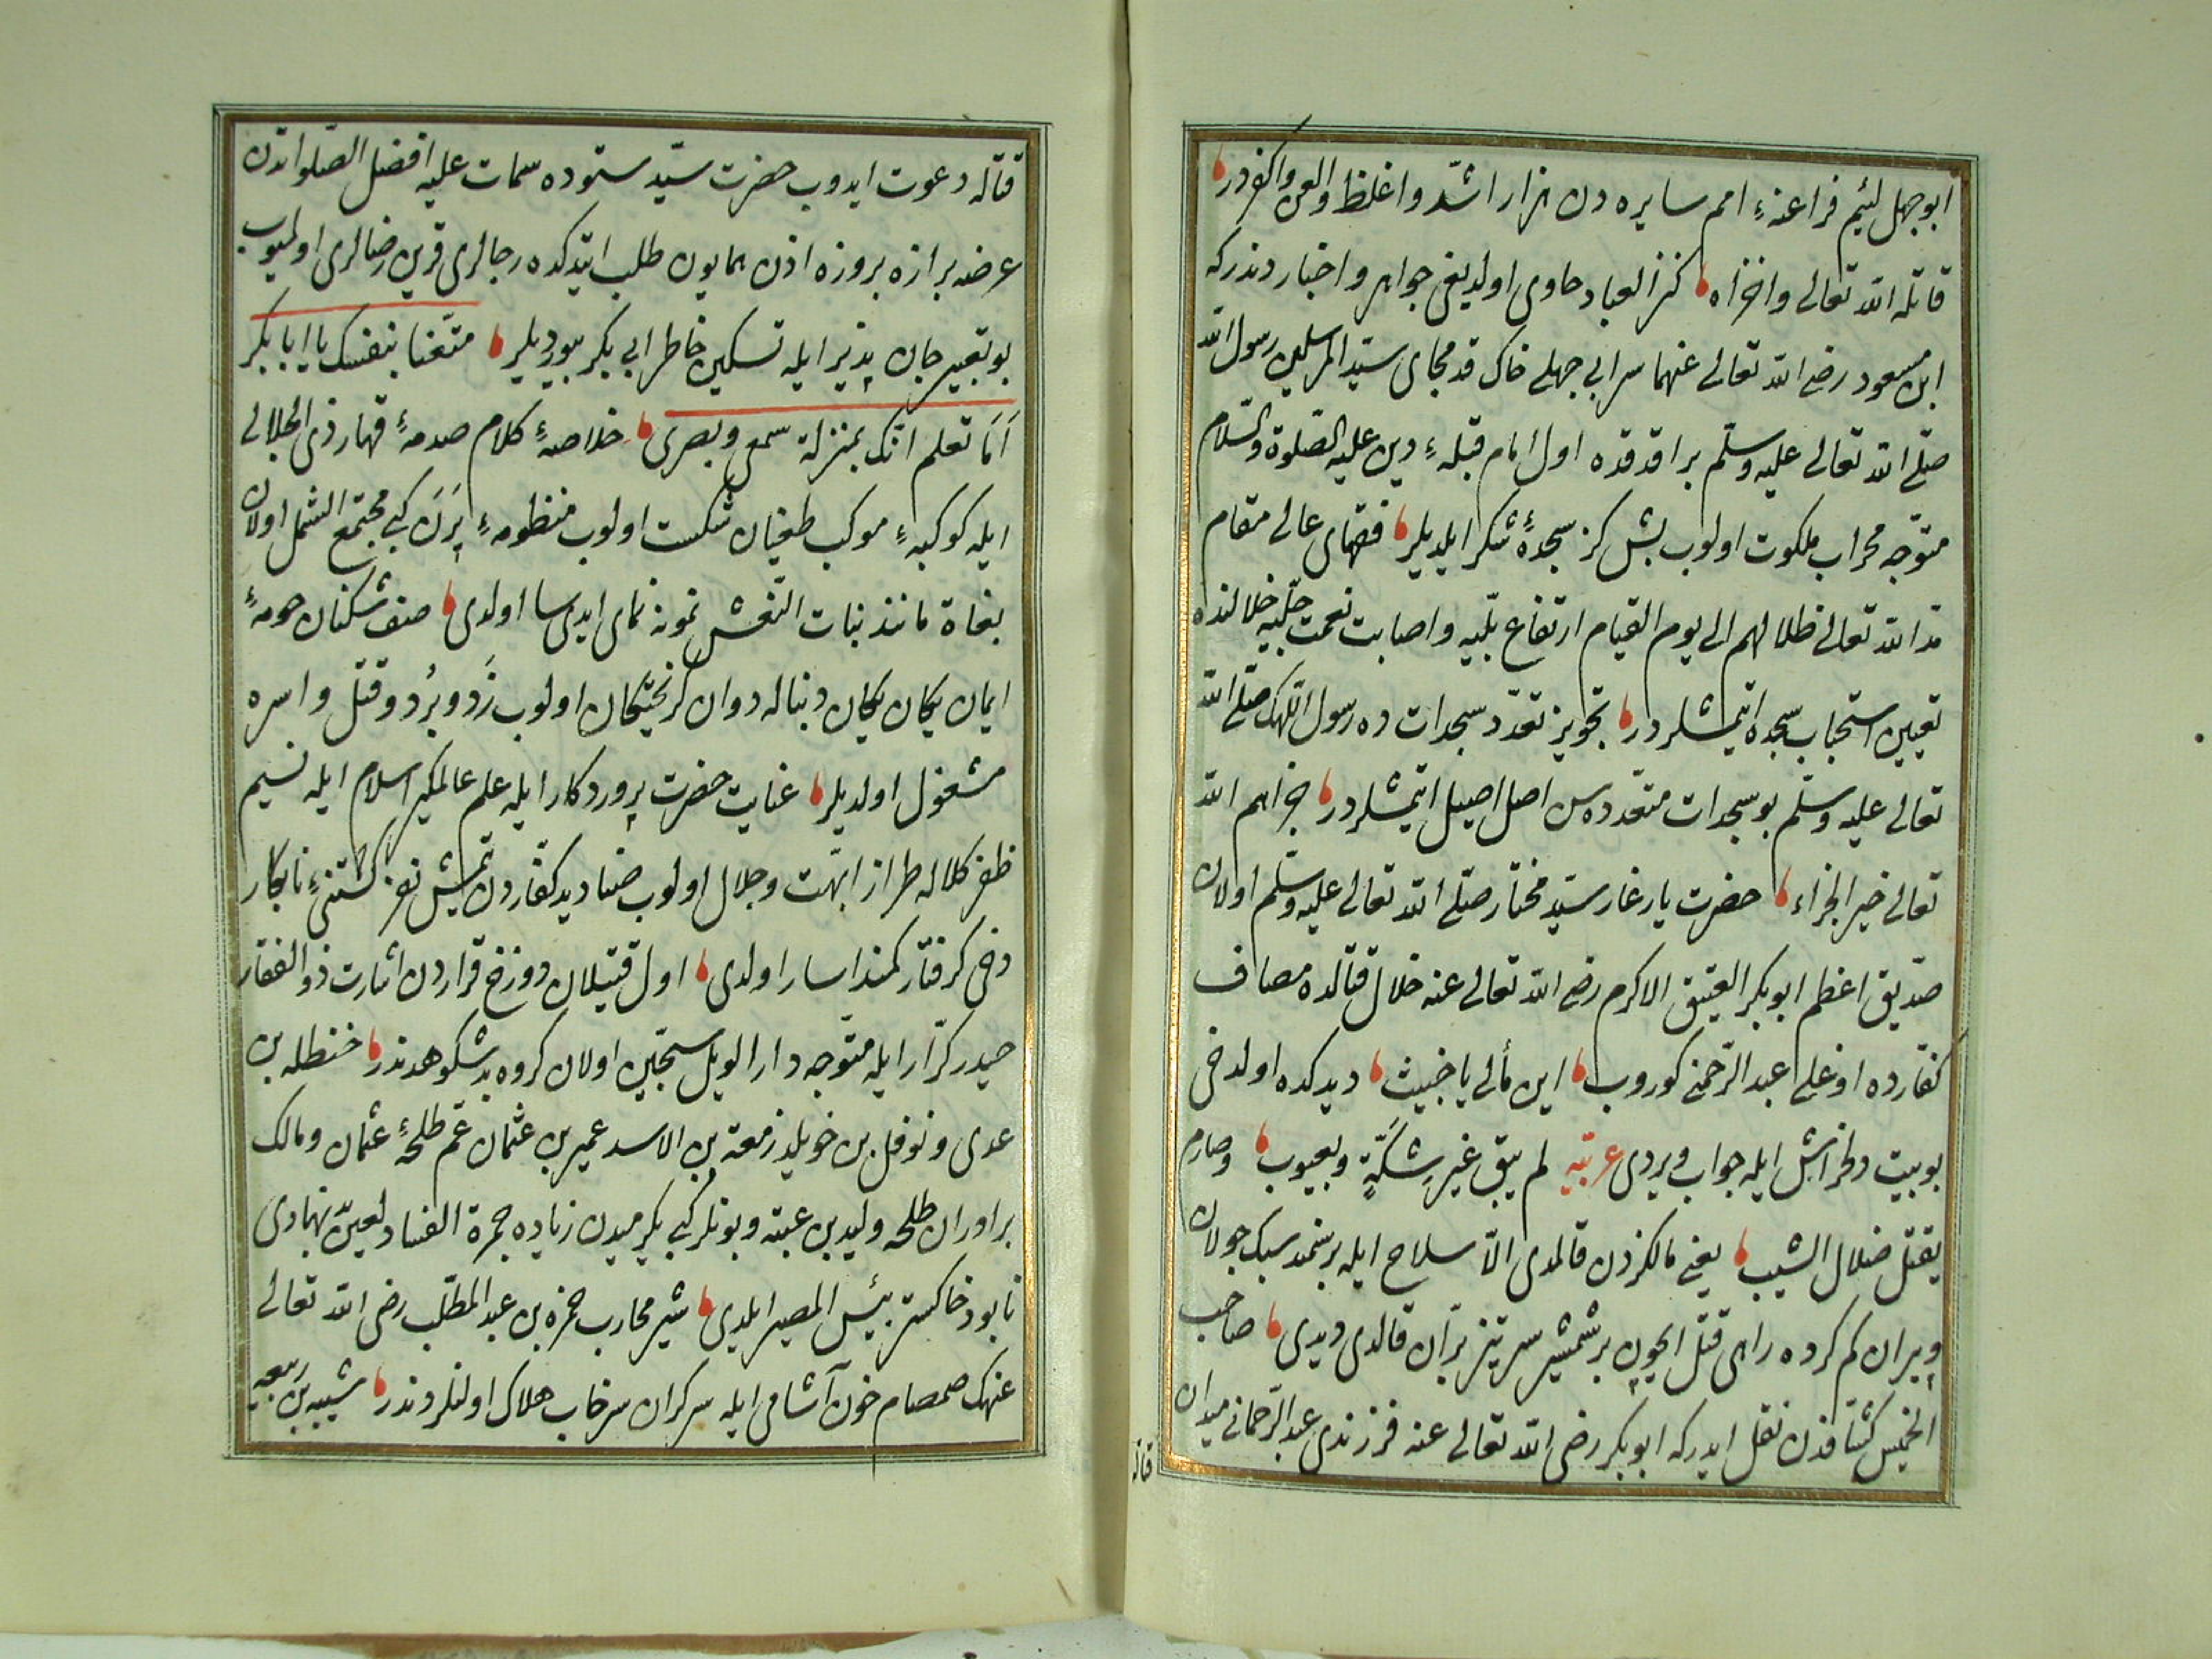 ابوجهل لئیم فراعنهٔ امم سایره دن هزار اشدّ و اغلظ و العن و اکفردر
قاتله الله تعالی و اخزاه کنز العباد حاوی اولدیغی جواهر و اخباردندركه
ابن مسعود رضی الله تعالی عنهما سر ابی جهلی خاک قدمجای سیّد المرسلین رسول الله
صلّی الله تعالی علیه وسلّم براقدقده اول امام قبلهٔ دین علیه الصّلوة والسّلام
متوجّه محراب ملکوت اولوب بش کز سجدهٔ شکر ایلدیلر فقهای عالی مقام
مدّ الله تعالی ظلالهم الی یوم القیام ارتفاع بلیّه و اصابت نعمت جلیّه خلالنده
تعیین استحباب سجده ایتمشلردر تجویز تعدّد سجدات ده رسول اللهک صلّی الله
تعالی علیه وسلّم بو سجدات متعدده سن اصل اصیل ایتمشلردر جزاهم الله
تعالی خیر الجزاء حضرت یار غار سیّد مختار صلّی الله تعالی علیه وسلّم اولان
صدّیق اعظم ابوبکر العتیق الاکرم رضی الله تعالی عنه خلال قتالده مصاف
کفّارده اوغلی عبد الرّحمنی کوروب این مالی یا خبیث دیدکده اولدخی
بو بیت دلخراش ایله جواب ویردی عربیّه لم یبق غیر شکّةٍ ویعبوب وصارم
یقتل ضلال الشیب یعنی مالکزدن قالمدی الّا سلاح ایله بر سمند سبک جولان
و پیران کم کرده راهی قتل ایچون بر شمشیر سر تیز برّان قالدی دیدی صاحب
الخمیس کشّافدن نقل ایدرکه ابوبکر رضی الله تعالی عنه فرزندی عبد الرّحمانی میدان
قتاله
قتاله دعوت ایدوب حضرت سیّد ستوده سمات علیه افضل الصّلواتدن
عرضه برازه بروزه اذن همایون طلب ایتدکده رجالری قرین رضالری اولمیوب
بو تعبیر جان پذیر ایله تسکین خاطر ابی بکر بیوردیلر متّعنا بنفسک یا ابا بکر
اَمَا تعلم انّک بمنزلة سمعی وبصری خلاصهٔ کلام صدمهٔ قهار ذی الجلالی
ایله کوکبهٔ موکب طغیان شکست اولوب منظومهٔ پَرَن کبی مجتمع الشمل اولان
بغاة مانند بنات النّعش نمونه نمای ایدی سبا اولدی صف شکنان حومهٔ
ایمان یکان یکان دنباله دوان کریختکان اولوب زَد و بُرد و قتل و اسره
مشغول اولدیلر عنایت حضرت پروردکار ایله علم عالمگیر اسلام ایله نسیم
ظفر کلاله طراز ابهّت و جلال اولوب صنادید کفّاردن یتمش نفر کشتنیٔ نابکار
دخی کرفتار کمند اسار اولدی اول قتیلان دوزخ قراردن اشارت ذو الفقار
حیدر کرّار ایله متوجّه دار الویل سجّین اولان کروه بد شکوهدندر حنظله بن
عدی و نوفل بن خویلد زمعة بن الاسد عمیر بن عثمان عمّ طلحهٔ عثمان ومالک
براوران طلحه ولید بن عتبه و بونلر کبی یکرمیدن زیاده جمرة الفساد لعین نهادی
نابود خاکستر بئس المصیر ایلدی شیر محارب حمزه بن عبد المطّلب رضی الله تعالی
عنهک صمصام خون آشامی ایله سرکران سرخاب هلاک اولنلردندر شیبه بن ربیعه